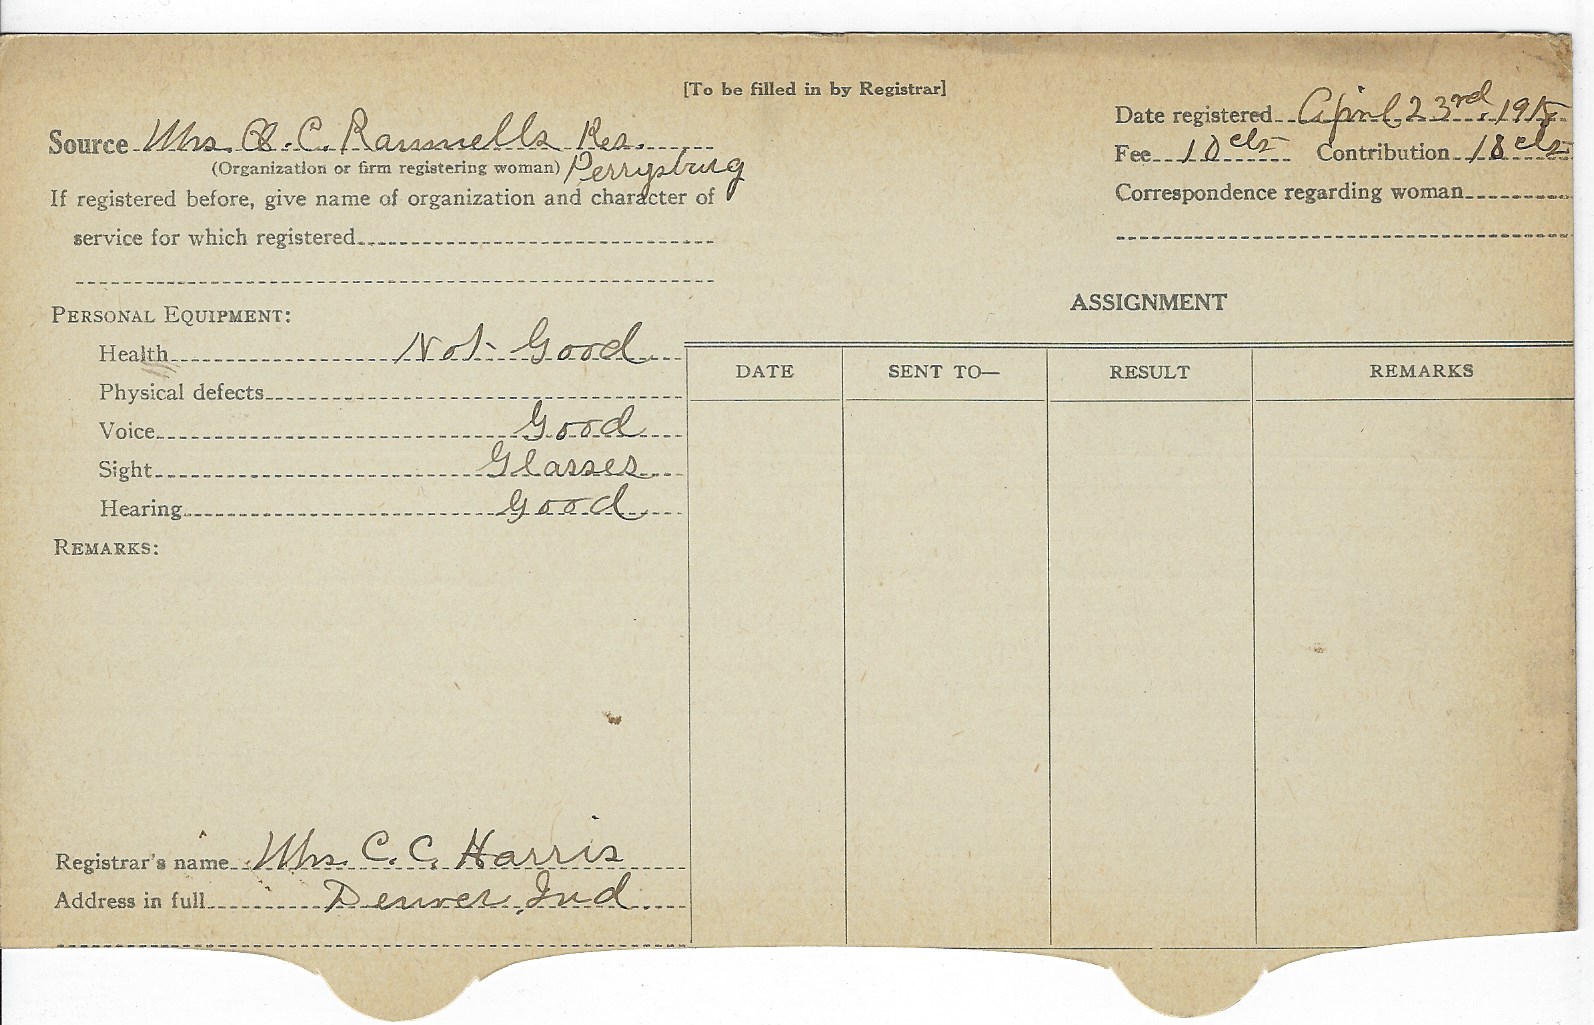 [To be filled in by Registrar]
Source Mrs. C. Rammells Res.
(Organization or firm registering woman) Perrysburg
If registered before, give name of organization and character of
service for which registered
Date registered April 23rd, 1918
Fee 10 cts Contribution 18 cts
Correspondence regarding woman
PERSONAL EQUIPMENT:
Health Not Good
Physical defects
Voice Good
Sight Glasses
Hearing Good
REMARKS:
Registrar's name Mrs. C. C. Harris
Address in full Denver, Ind.
ASSIGNMENT
DATE SENT TO— RESULT REMARKS